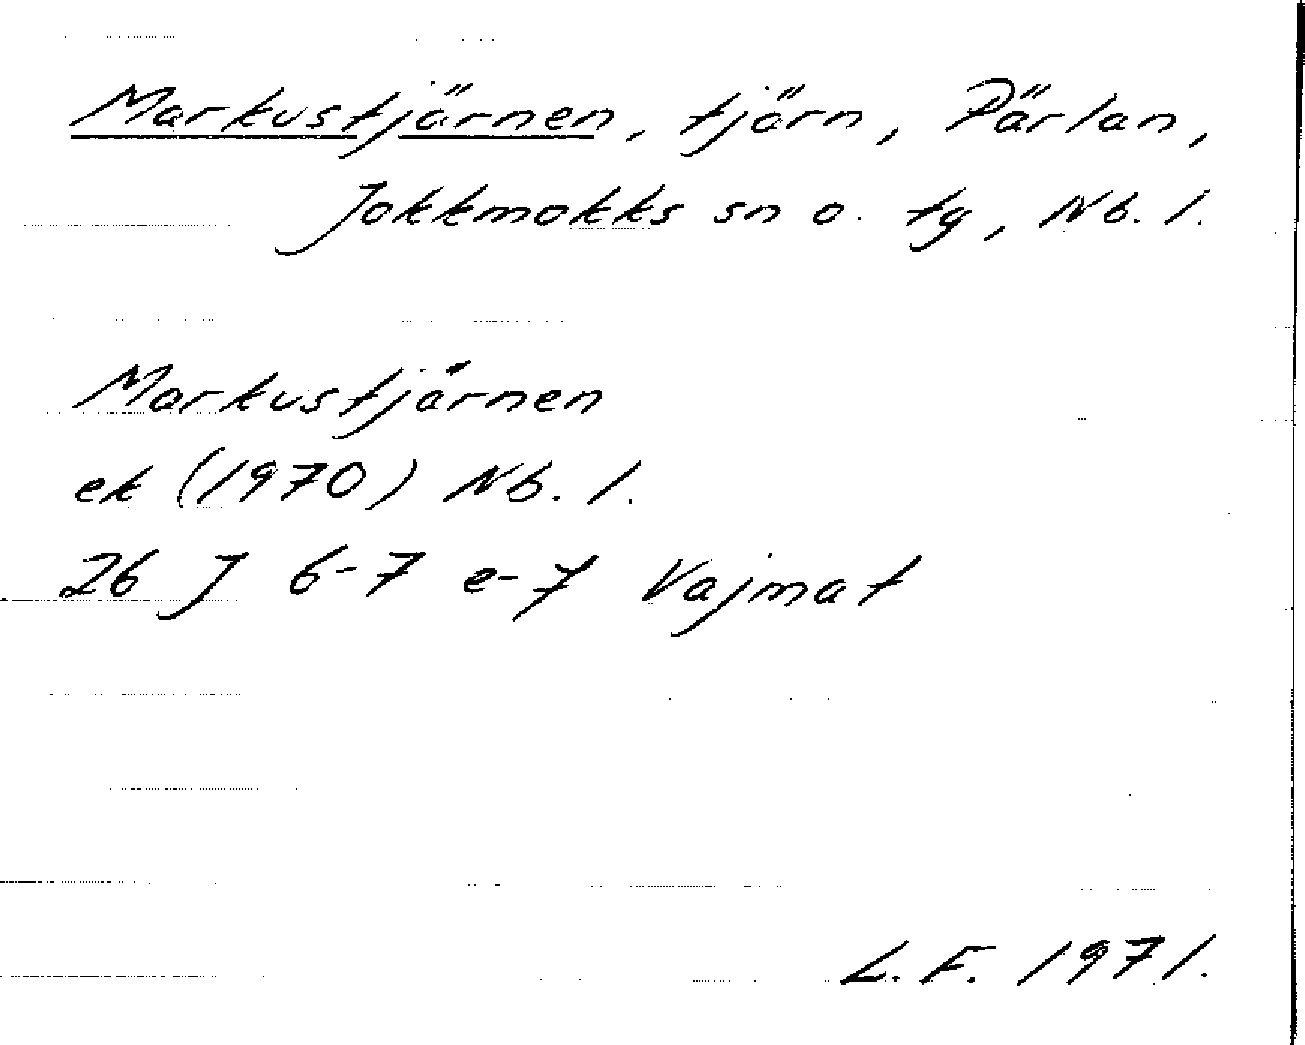 Markustjärnen, tjärn, Pärlan,
Jokkmokks sn o. tg, Nb. l.
Markustjärnen
ek (1970) Nb. l.
26 J 6-7 e-f Vajmat
L. F. 1971.